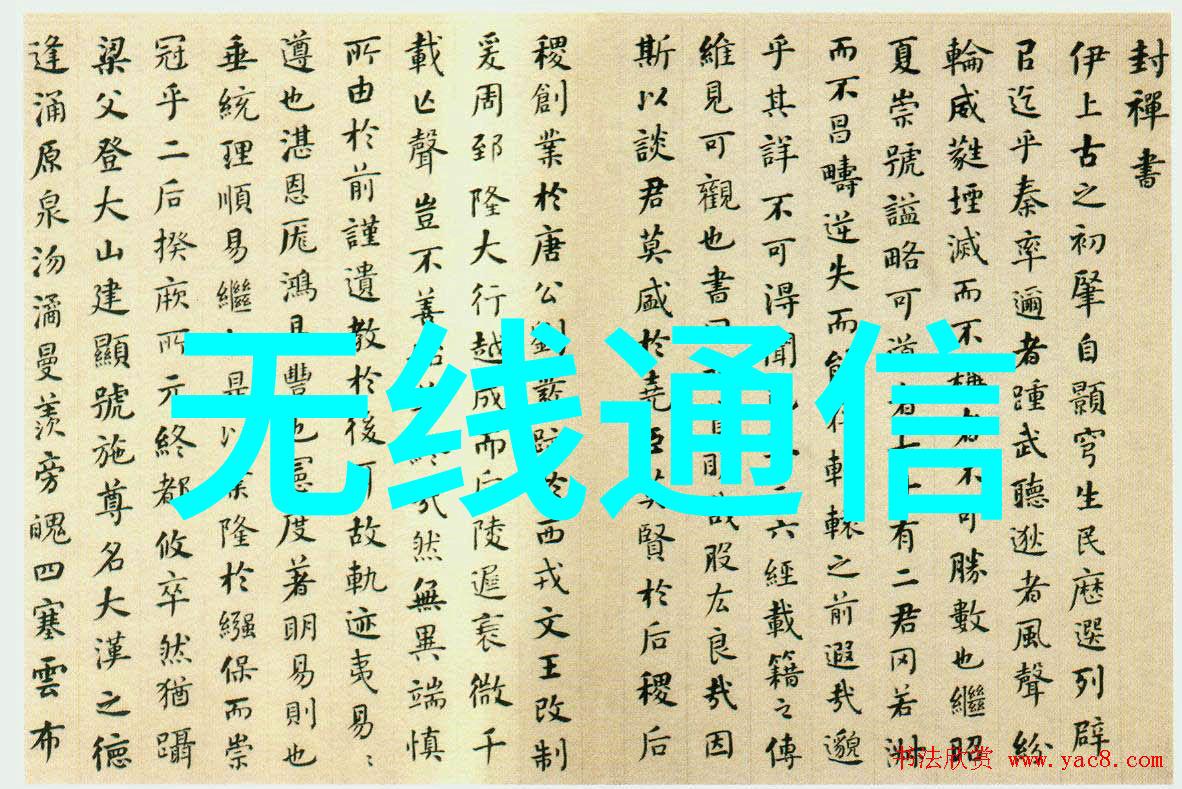 封禪書
伊上古之初肇自顥穹生民歷選列辟
㠯迄乎秦率邇者踵武聽逖者風聲紛
輪威蕤堙滅而不者不可勝數也繼昭
夏崇號謚略可道者有二君罔若淑
而不昌疇逆失而能存軒轅之前遐哉邈
乎其詳不可得聞六經載籍之傳
維見可觀也書曰首明哉股厷良哉因
斯以談君莫盛於堯臣莫賢於后稷后
稷創業於唐公劉發跡於西戎文王改制
爰周郅隆大行越成而后陵遲衰微千
載亡聲豈不善始終哉然無異端慎
所由於前謹遺教於後耳故軌迹夷易〻
遵也湛恩厖鴻易豐也憲度著明易則也
垂統理順易繼是以業隆於繈保而崇
冠乎二后揆厥所元終都攸卒然猶躡
梁父登大山建顯號施尊名大漢之德
逢涌原泉沕潏曼羨旁魄四塞雲布
无线通信
书法欣赏 www.yac8.com